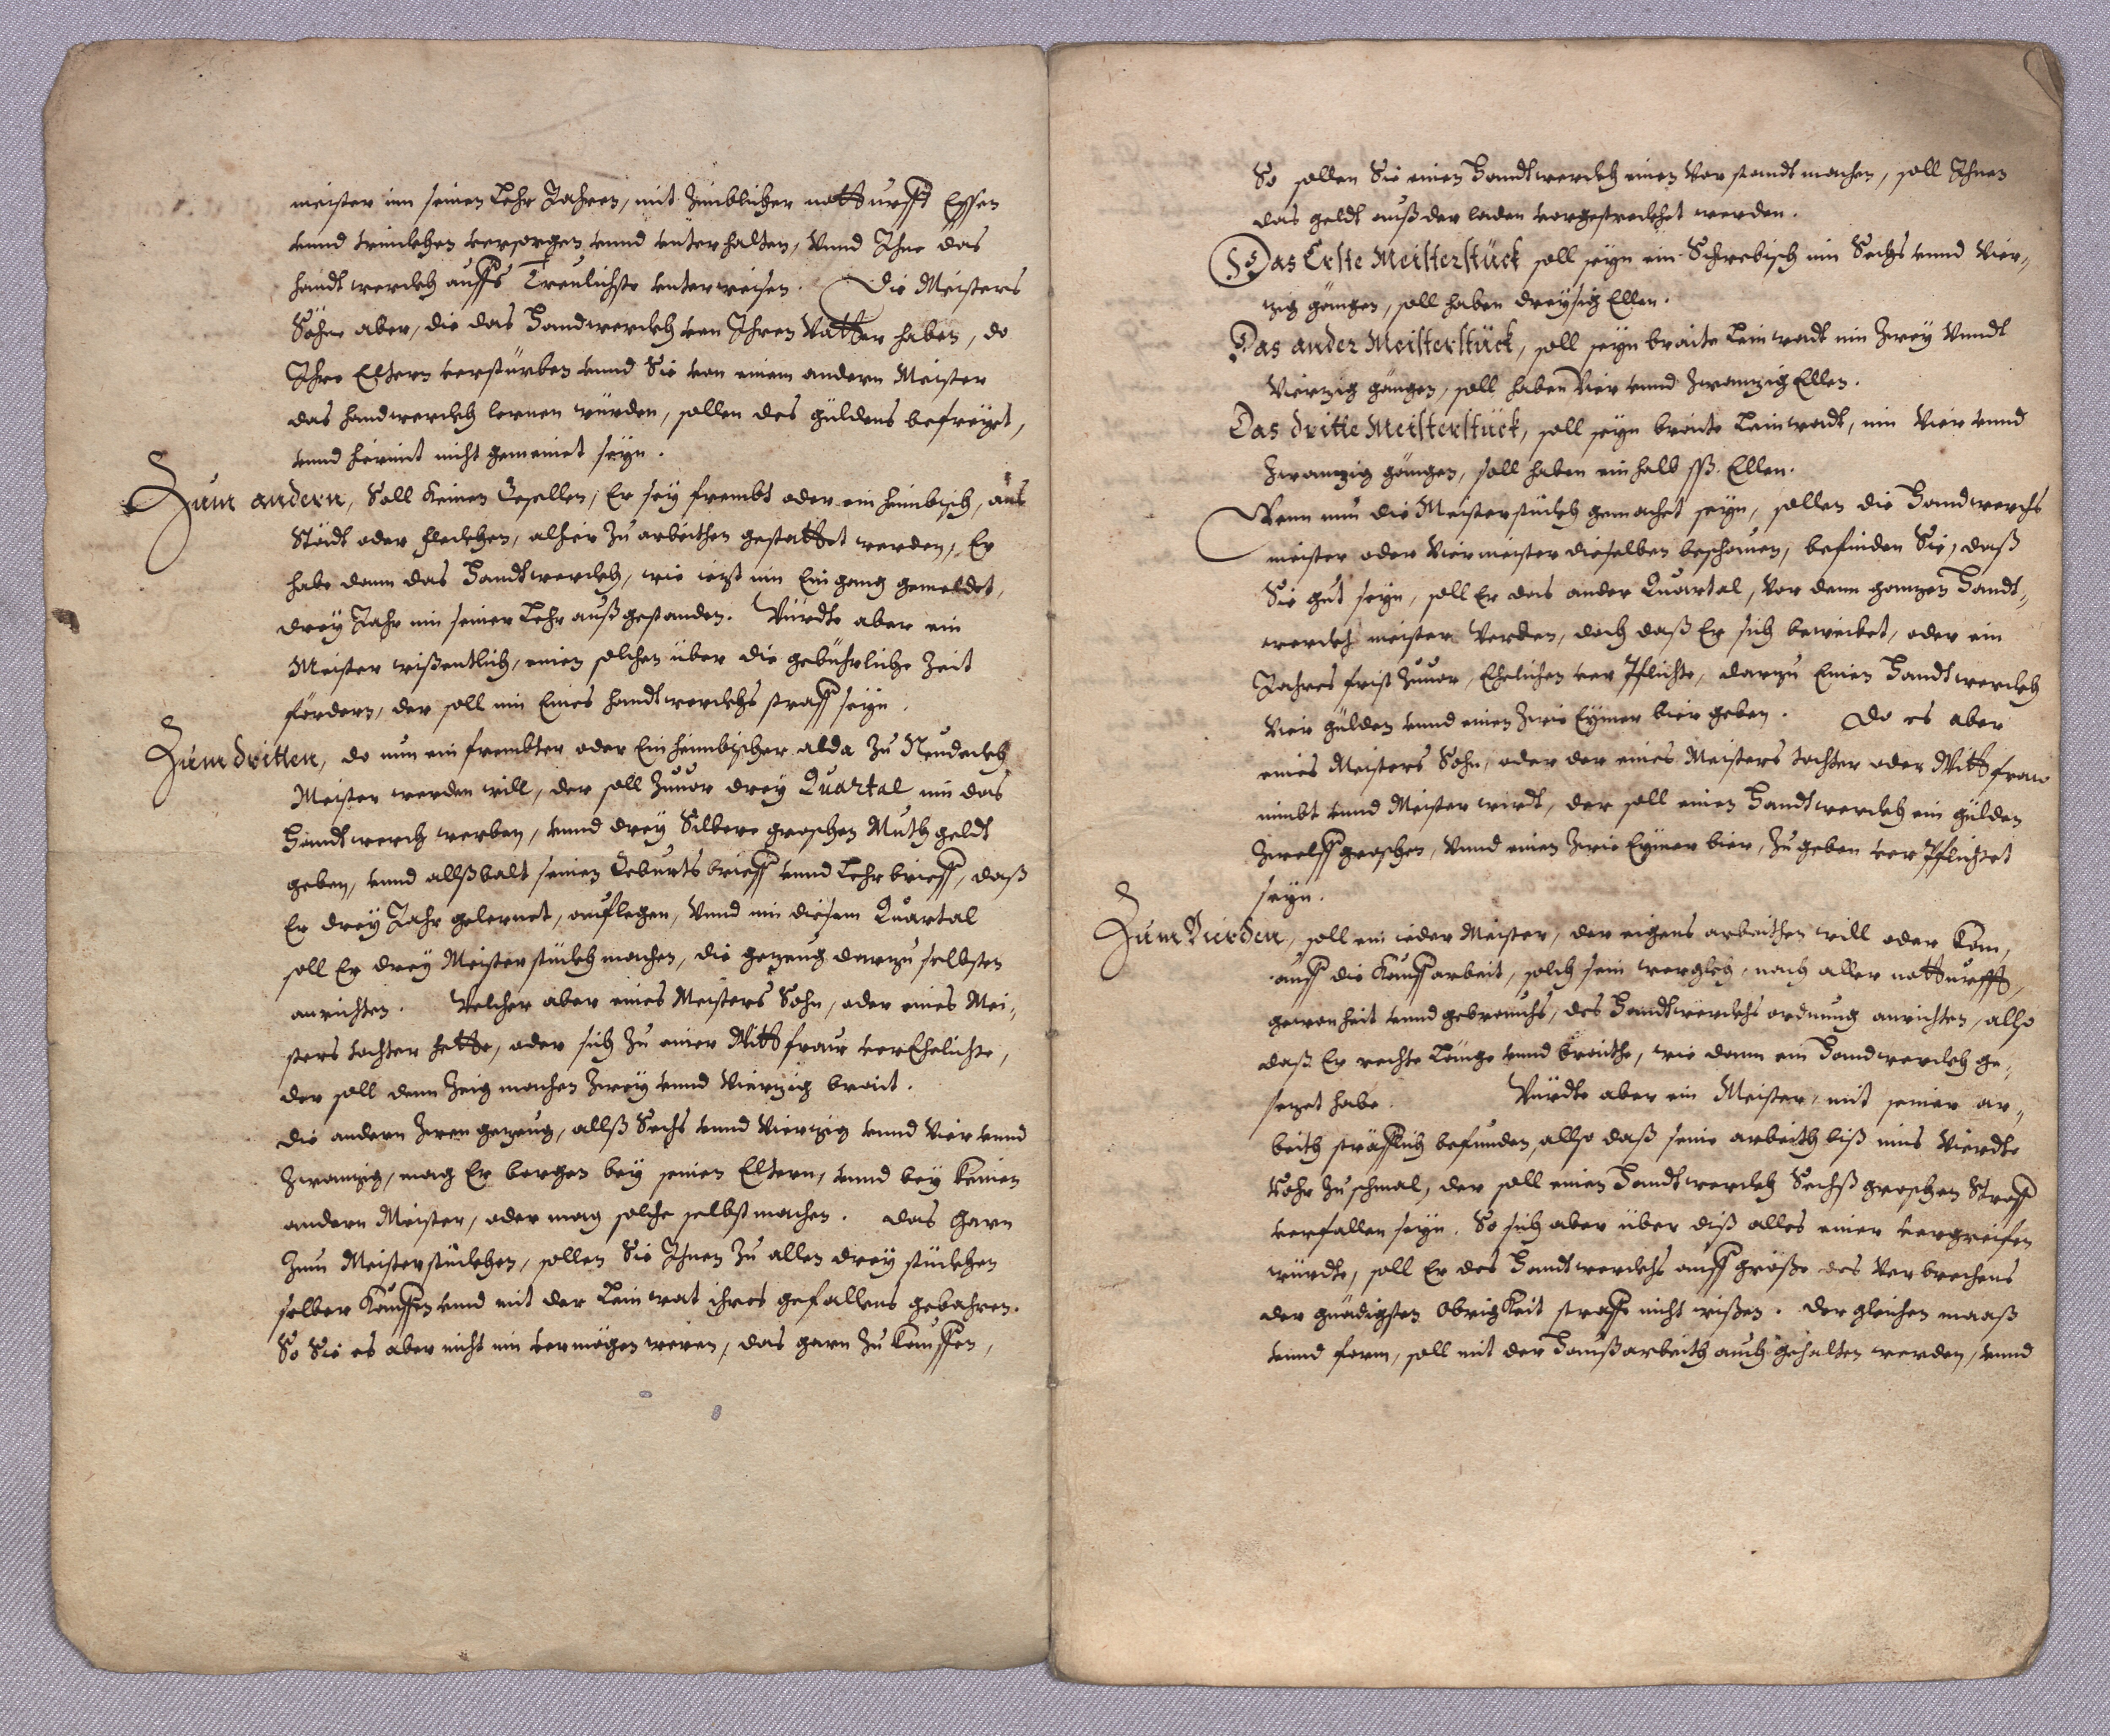 meister inn seinen Lehr Jahren, mit Zimblicher notturfft Essen
vnnd trincken versorgen vnnd vnterhalten, Vnnd Ihne das
handtwerckh auffs Treulichste vnterweisen. Die Meisters
Söhne aber, die das Handwerckh von Ihren Vatter haben, do
Ihre Eltern verstürben vnnd Sie von einem andern Meister
das handwerckh lernen würden, sollen des güldens befreyet,
vnnd hiermit nicht gemeinet seyn.
Zum andern, Soll Keinen Gesellen, Er sey frembt oder einheimbisch, auß
Städt oder fleckhen, alhier zu arbeithen gestattet werden, Er
habe dann das Handtwerckh, wie ietzt im Eingang gemeldet,
drey Jahr inn seiner Lehr außgestanden. Würdte aber ein
Meister wißentlich, einen solchen über die gebührliche Zeit
fördern, der soll inn Eines handtwerckhs straff seyn.
Zum dritten, do nun ein frembter oder Einheimbischer alda zu Neudeckh
Meister werden will, der soll Zuuor drey Quartal inn das
Handtwerckh werben, vnnd drey Silbere groschen Muth geldt
geben, vnnd allßbalt seinen Geburtsbrieff vnnd Lehrbrieff, daß
Er drey Jahr gelernet, aufflegen, Vnnd inn diesem Quartal
soll Er drey Meisterstückh machen, die gezeug darzu selbsten
anrichten. Welcher aber eines Meisters Sohn, oder eines Mei-
sters tochter hette, oder sich zu einer Wittfraw verEhelichte,
der soll denn Zeig machen Zwey vnnd Vierzig brait.
die andern Zween gezeug, allß Sechs vnnd Vierzig vnnd Vier vnnd
Zwanzig, mag Er borgen bey seinen Eltern, vnnd bey Keinen
andern Meister, oder mag solche selbst machen. das Garn
Zum Meisterstückhen, sollen Sie Ihnen Zu allen drey stückhen
selber Kauffen vnnd mit der Leinwat ihres gefallens gebahren.
So Sie es aber nicht im vermögen weren, das garn Zu Kauffen,
So sollen Sie einen Handtwerckh einen Vorstandt machen, soll Ihnen
das geldt auß der laden vorgestreckhet werden.
Das Erste Meisterstück soll seyn ein Schwebisch inn Sechs vnnd Vier-
zig gängen, soll haben dreyßig Ellen.
Das ander Meisterstück, soll seyn braite Leinwadt inn Zwey Vnndt
Vierzig gängen, soll haben Vier vnnd Zwanzig Ellen.
Das dritte Meisterstück, soll seyn braite Leinwadt, inn Vier vnnd
Zwanzig gängen, soll haben ein halb ßß. Ellen.
Wenn nun die Meisterstückh gemachet seyn, sollen die Handwerckhs
meister oder Viermeister dieselben beschawen, befinden Sie, daß
Sie gut seyn, soll Er das ander Quartal, Vor dem ganzen Handt-
werckh meister Werden, doch daß Er sich beweibet, oder ein
Jahres frist Zuuor, Ehelichen verPflichte, darzu Einen Handtwerckh
Vier gülden vnnd einen Zwie Eymer bier geben. Do es aber
eines Meisters Sohn, oder der eines Meisters tochter oder Wittfraw
nimbt vnnd Meister wirdt, der soll einen Handtwerckh ein gülden
Zwelff groschen, Vnnd einen Zwie Eymer bier, Zu geben verPflichtet
seyn.
Zum Vierden, soll ein ieder Meister, der eigens arbeithen will oder Kan,
auff die Kauffarbeit, solch sein werckh, nach aller notturfft,
gewonheit vnnd gebrauchs, des Handtwerckhs ordnung anrichten, also
daß Er rechte Länge vnnd braithe, wie dann ein Handwerckh ge-
sezet habe. Würdte aber ein Meister, mit seiner ar-
beith sträfflich befunden, allso daß seine arbeith biß ins Vierdte
Rohr Zu schmal, der soll einen Handtwerckh Sechß groschen Straff
verfallen seyn. So sich aber über diß alles einer vergreifen
würdte, soll Er des Handtwerckhs auff größe des Verbrechens
der gnädigsten ObrigKeit straffe nicht wißen. Der gleichen maaß
vnnd form, soll mit der Haußarbeith auch gehalten werden, vnnd